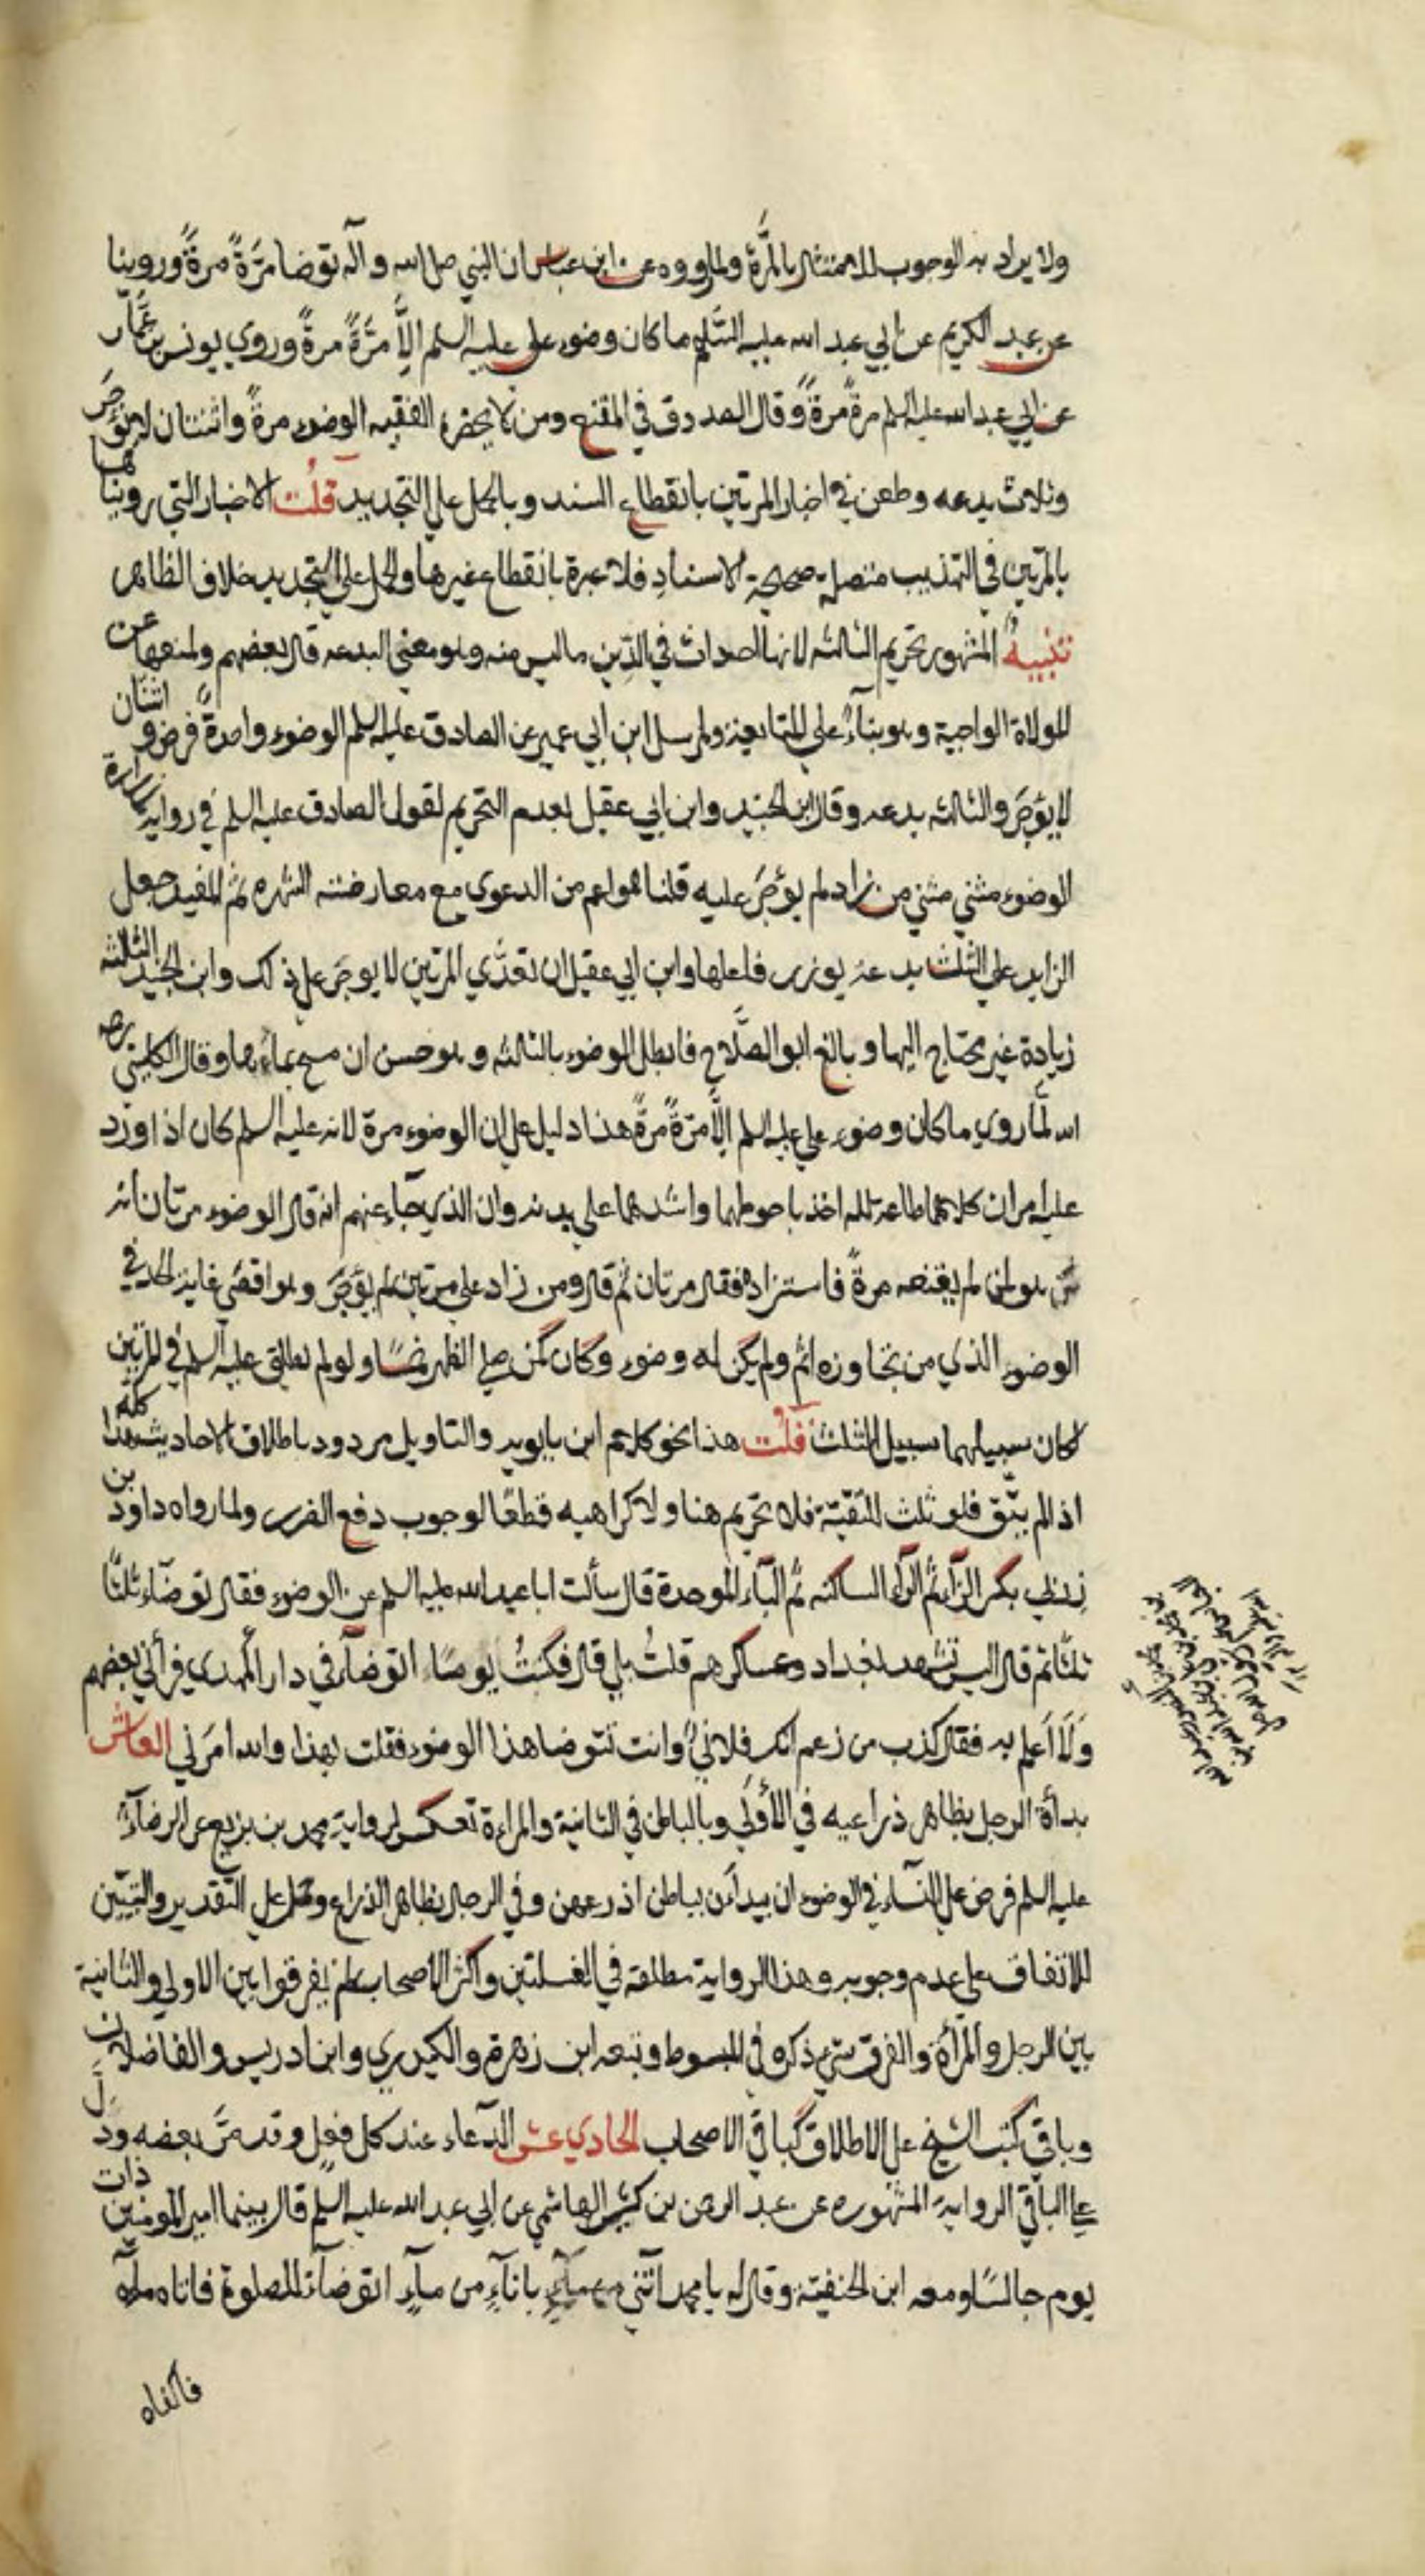 ولا يراد به الوجوب للامتثال بالمرَّة ولما رووه عن ابن عباس ان النبي صلى الله و آله توضا مرَّةً مرةً وروينا
عن عبد الكريم عن ابي عبد الله عليه السَّلم ما كان وضوء علي عليه السلم الاَّ مرَّةً مرةً وروي يونس بن عمَّار
عن ابي عبد الله عليه السلم مرةً مرةً وقال الصدوق في المقنع ومن لا يحضره الفقيه الوضوء مرةً واثنتان لا يؤجر
وثلاث بدعه وطعن في اخبار المرتين بانقطاع السند وبالحمل علي التجديد قلت الاخبار التي رويناها
بالمرتين في التهذيب متصلة صحيحة الاسنادِ فلا عبرة بانقطاع غيرها والحمل علي التجديد خلاف الظاهر
تنبيهٌ المشهور تحريم الثالثه لانها احداث في الدِّين ما ليس منه وهو معني البدعه قال بعضهم ولمنعها عن
الموالاة الواجبة وهو بناءً علي المتابعة ولمرسل ابن ابي عمير عن الصادق عليه السلم الوضوء واحدةً فرض و اثنتان
لا يؤجَر والثالثه بدعه وقال ابن الجنيد وابن ابي عقيل بعدم التحريم لقول الصادق عليه السلم في رواية زرارة
الوضوء مثني مثني من زاد لم يؤجَر عليه قلنا هو اعم من الدعوي مع معارضته الشهره ثم المفيد جعل
الزايد علي الثلث بدعة يوزر فاعلها وابن ابي عقيل ان تعدَّي المرتين لا يوجر علي ذلك وابن الجنيد الثالثه
زيادة غير محتاج اليها و بالغ ابو الصَّلاح فابطل الوضوء بالثالثه و هو حسن ان مسح بمائها وقال الكليني رحمه
الله لمَّا روي ما كان وضوء علي عليه السلم الاَّ مرَّةً مرةً هذا دليل علي ان الوضوء مرة لانه عليه السلم كان اذا ورد
عليه امران كلاهما طاعة لله اخذ باحوطهما واشدهما علي بدنه وان الذي جاء عنهم انه قال الوضوء مرتان انه
هو لمن لم يقنعه مرةً فاستزاده فقال مرتان ثم قال ومن زاد علي مرتين لم يؤجَر وهو اقصي غاية الحد في
الوضوء الذي من تجاوزه اثم ولم يكن له وضوء وكان كمن صلي الظهر خمسًا ولو لم يطلق عليه السلم في المرتين
لكان سبيلهما سبيل الثلث قلت هذا نحو كلام ابن بابويه والتاويل مردود باطلاق الاحاديث هذا كله
اذا لم يتَّق فلو ثلث للتقيّة فلا تحريم هنا ولا كراهيه قطعًا لوجوب دفع الضرر ولما رواه داود بن
زِربي بكسر الزآء ثم الرآء الساكنه ثم البآء الموحدة قال سألت ابا عبد الله عليه السلم عن الوضوء فقال توضأ ثلثًا
ثلثًا ثم قال اليس تشهد بغداد وعساكرهم قلت بلي قال فكنتُ يومًا اتوضأ في دار المهدي فرأني بعضهم
وَلَا اَعلم به فقال كذب من زعم انك فلاني وانت تتوضا هذا الوضوء فقلت بهذا والله امرَني العاشر
بدأة الرجل بظاهر ذراعيه في الأولي وبالباطن في الثانية والمراة تعكس لرواية محمد بن بزيع عن الرضا
عليه السلم فرض علي النسآء في الوضوء ان يبدأن بباطن اذرعهن وفي الرجال بظاهر الذراع وحمل علي التقدير والتبيّن
للاتفاق علي عدم وجوبه وهذا الرواية مطلقة في الغسلتين واكثر الاصحاب لم يفرقوا بين الاولي والثانية
بين الرجل والمرأة والفرق شيء ذكره في المبسوط وتبعه ابن زهرة والكيدري وابن ادريس والفاضلان
وباقي كتب الشيخ علي الاطلاق كباقي الاصحاب الحادي عشر الدّعاء عند كل فعل وقد مرَّ بعضه ودل
علي الباقي الرواية المشهوره عن عبد الرحمن بن كثير الهاشمي عن ابي عبد الله عليه السلم قال بينما امير المومنين ذات
يوم جالسًا ومعه ابن الحنفيّة وقال له يا محمد ائتني بانآءٍ من مآءٍ اتوضأ للصلوة فاتاه محمد
فاكفاه